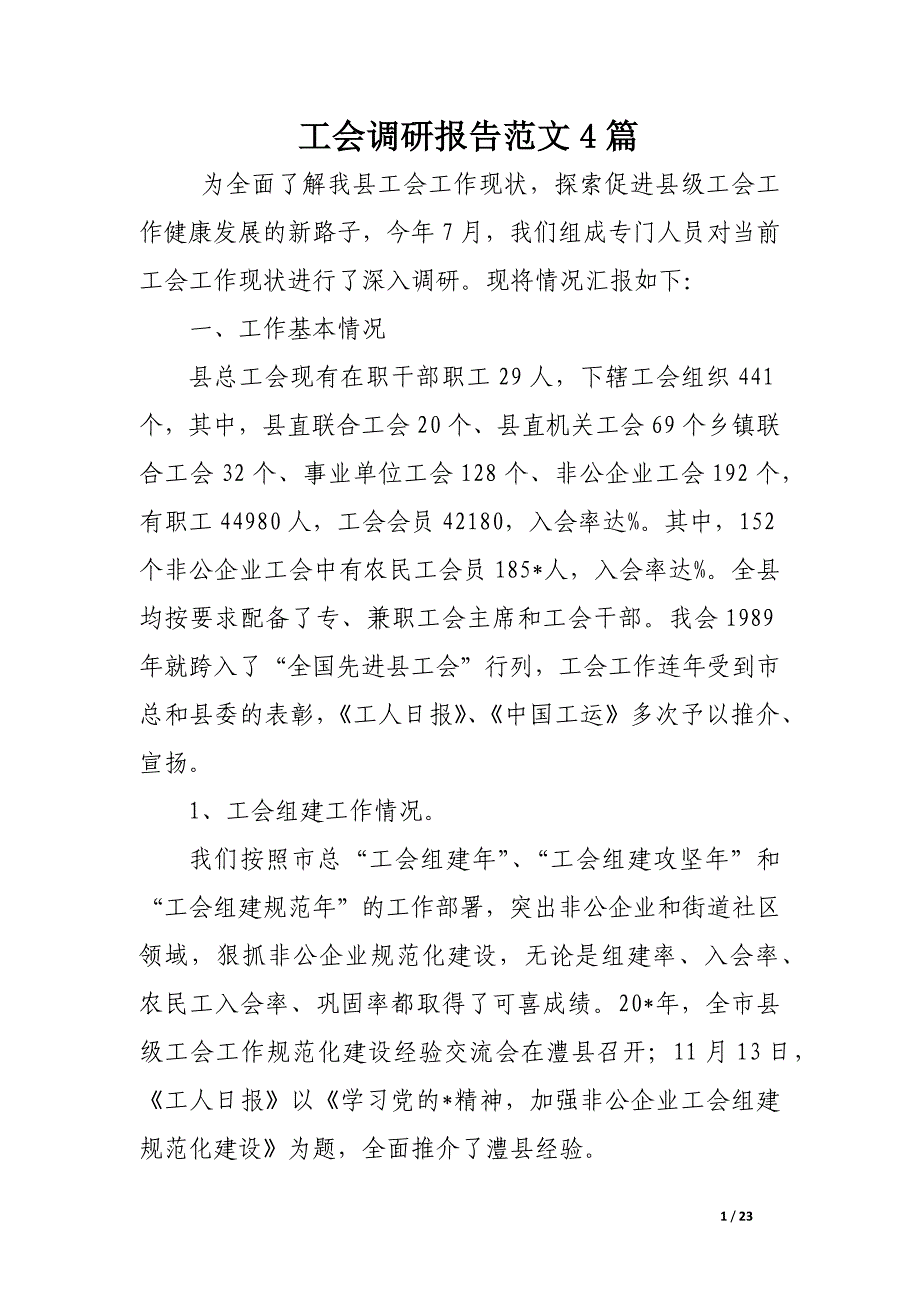 工会调研报告范文4篇
为全面了解我县工会工作现状，探索促进县级工会工
作健康发展的新路子，今年7月，我们组成专门人员对当前
工会工作现状进行了深入调研。现将情况汇报如下：
一、工作基本情况
县总工会现有在职干部职工29人，下辖工会组织441
个，其中，县直联合工会20个、县直机关工会69个乡镇联
合工会32个、事业单位工会128个、非公企业工会192个，
有职工44980人，工会会员42180，入会率达%。其中，152
个非公企业工会中有农民工会员185*人，入会率达%。全县
均按要求配备了专、兼职工会主席和工会干部。我会1989
年就跨入了“全国先进县工会”行列，工会工作连年受到市
总和县委的表彰，《工人日报》、《中国工运》多次予以推介、
宣扬。
1、工会组建工作情况。
我们按照市总“工会组建年”、“工会组建攻坚年”和
“工会组建规范年”的工作部署，突出非公企业和街道社区
领域，狠抓非公企业规范化建设，无论是组建率、入会率、
农民工入会率、巩固率都取得了可喜成绩。20*年，全市县
级工会工作规范化建设经验交流会在澧县召开；11月13日，
《工人日报》以《学习党的*精神，加强非公企业工会组建
规范化建设》为题，全面推介了澧县经验。
1 / 23